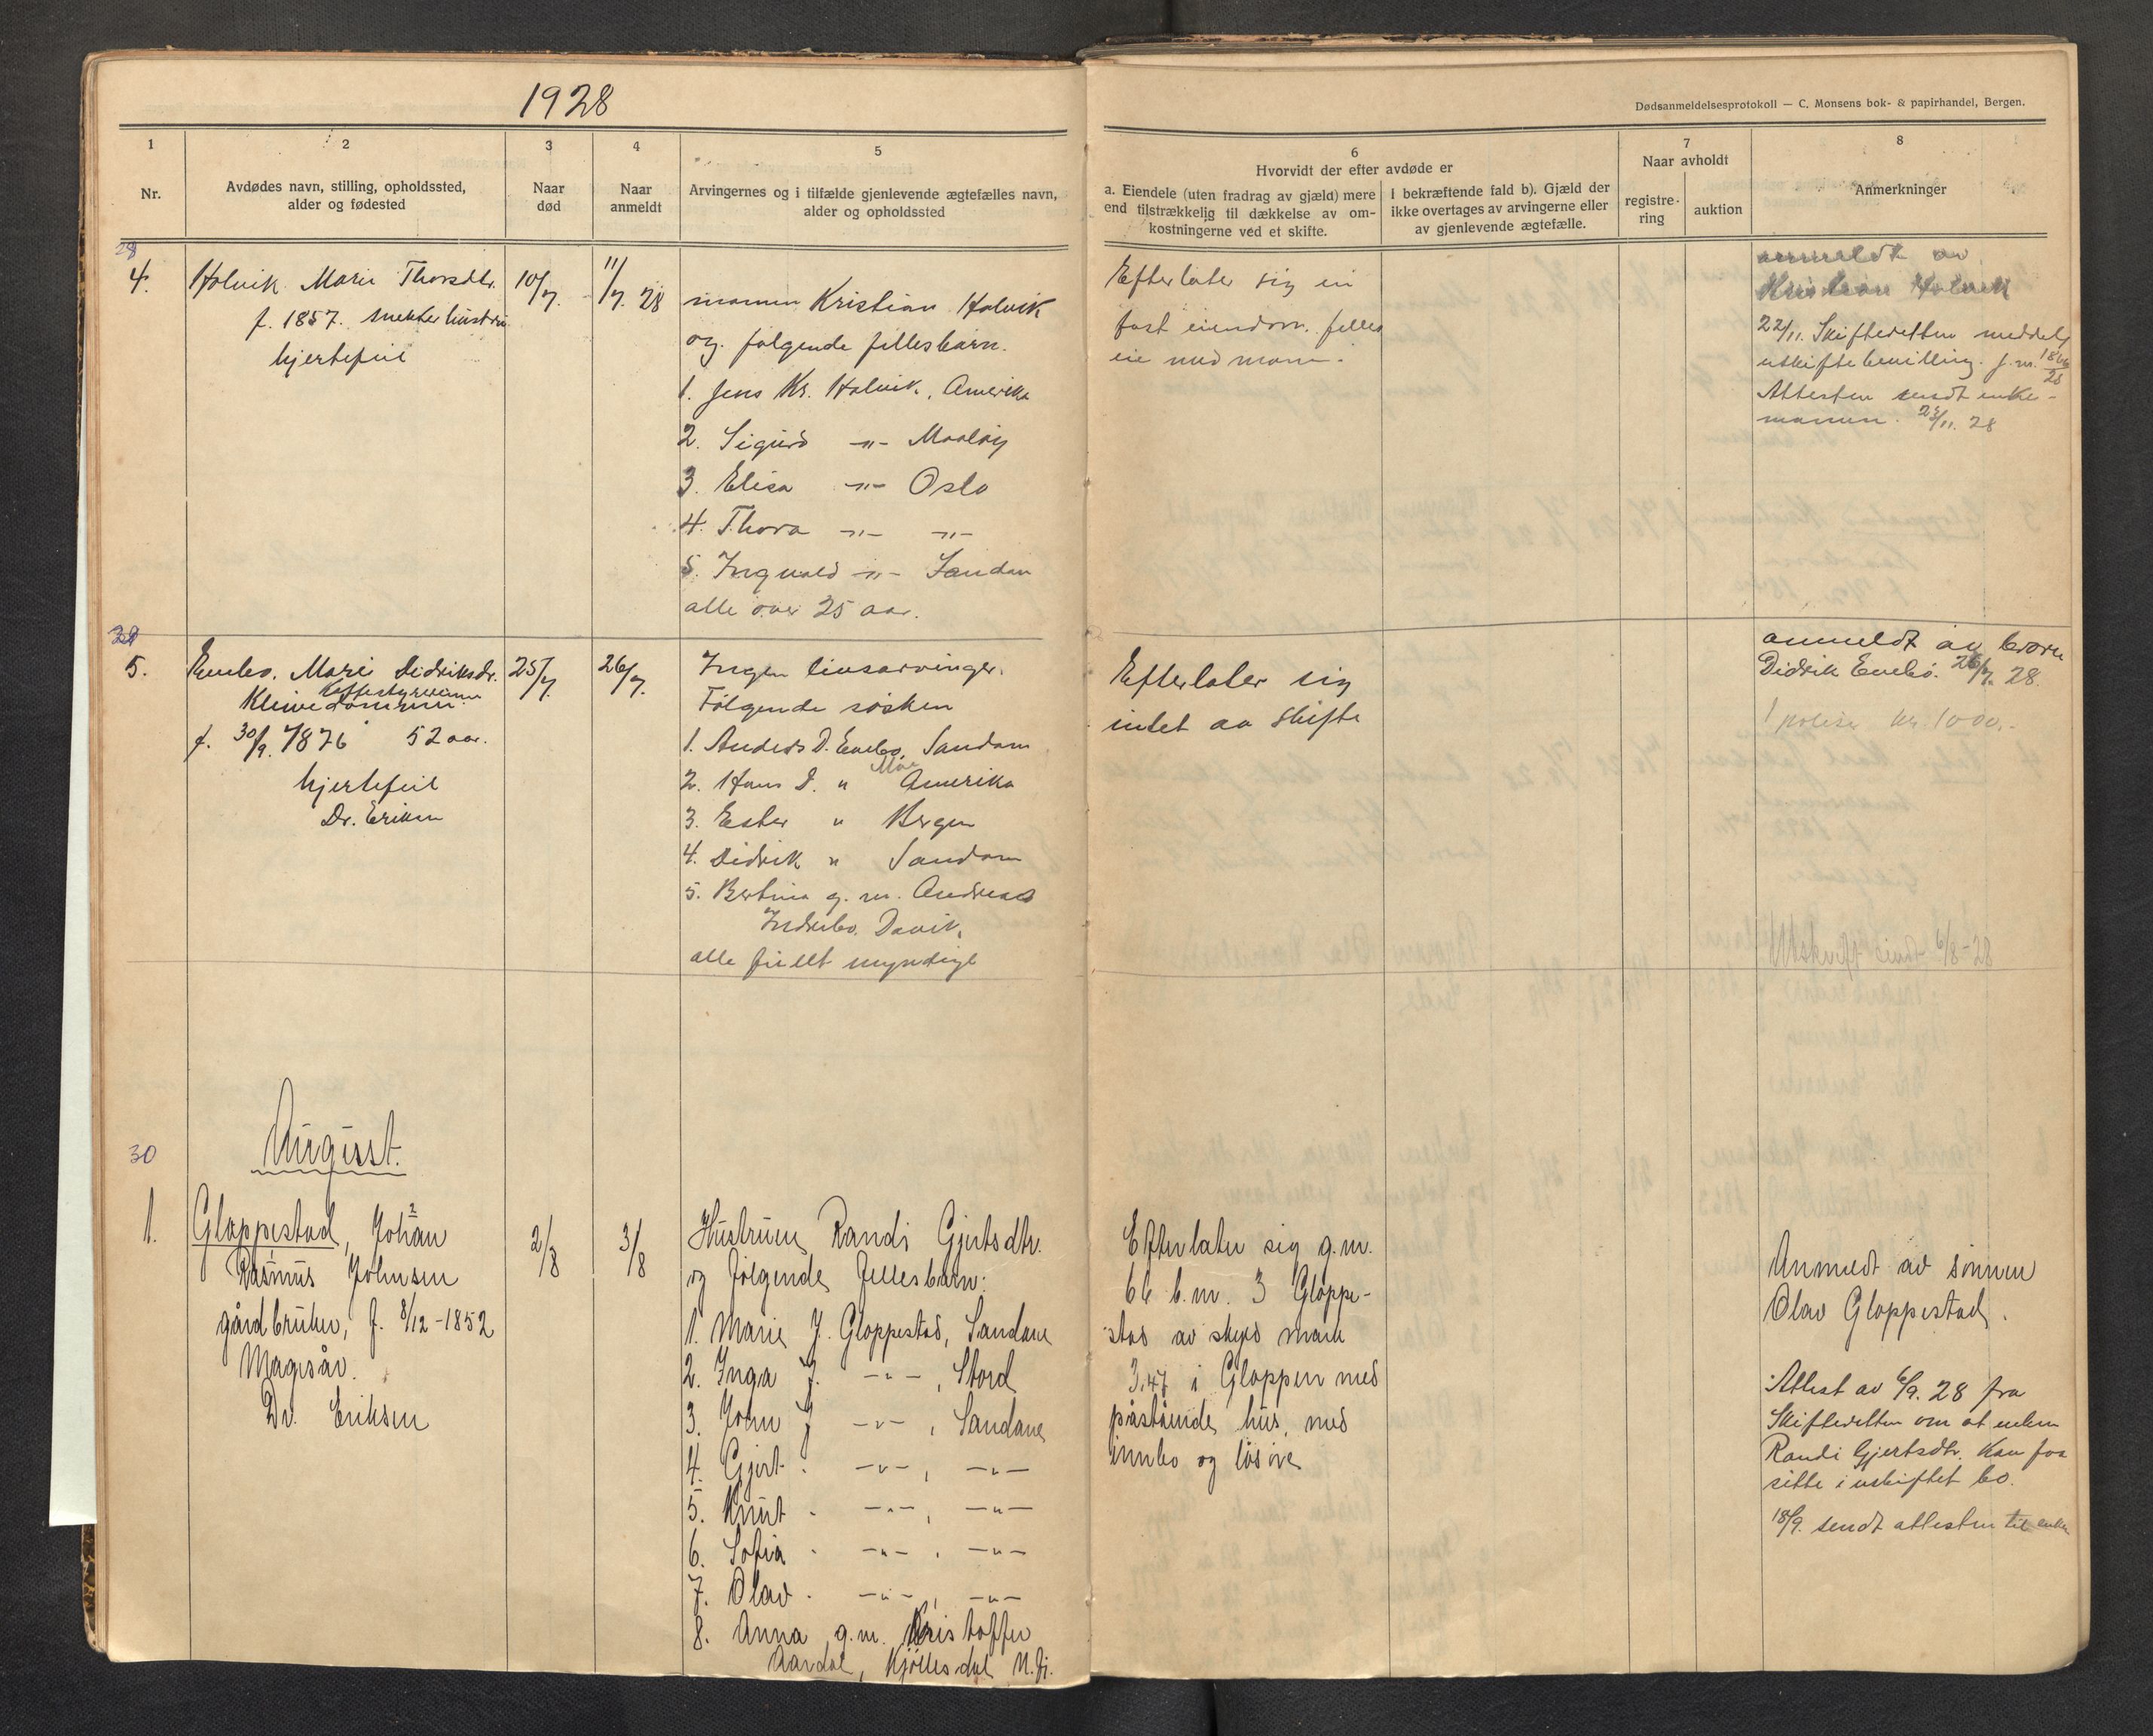 1928
Dødsanmeldelsesprotokoll — C. Monsens bok- & papirhandel, Bergen.
1
2
3
4
5
6
7
8
Nr.
Avdødes navn, stilling, opholdssted,
alder og fødested
Naar
død
Naar
anmeldt
Arvingernes og i tilfælde gjenlevende ægtefælles navn,
alder og opholdssted
Hvorvidt der efter avdøde er
a. Eiendele (uten fradrag av gjæld) mere
end tilstrækkelig til dækkelse av om-
kostningerne ved et skifte.
I bekræftende fald b). Gjæld der
ikke overtages av arvingerne eller
av gjenlevende ægtefælle.
Naar avholdt
registre-
ring
auktion
Anmerkninger
28
4.
Holvik Marie Thorsdtr.
f. 1857. snekkerhustru
hjertefeil
10/7.
11/7. 28
mannen Kristian Holvik
og følgende fellesbarn.
1. Jens Kr. Holvik, Amerika
2. Sigurd -"- Maaløy
3. Elisa -"- Oslo
4. Thora -"- -"-
5. Ingvald -"- Sandan
alle over 25 aar.
Efterlater sig en
fast eiendom. felles
eie med mann.
anmeldt av
Kristian Holvik
22/11. Skifteretten meddelt
uskiftebevilling. j. nr.
Attesten sendt enke-
mannen. 23/11. 28
29
5.
Enebo. Marie Didriksdr.
Kaffestyrerinne
f. 30/9. 1876 52 aar.
hjertefeil
Dr. Eriksen
25/7
26/7.
Ingen livsarvinger.
Følgende søsken
1. Anders D. Enebo, Sandam
2. Hans D. " Amerika
3. Ester " Bergen
4. Didrik " Sandam
5. Bertina g. m. Andreas
Indrebo. Davik.
alle fullt myndige
Efterlater sig
intet av skifte
anmeldt av broren
Didrik Enebö. 26/7. 28.
1 polise kr. 1000.-
Utskrift sendt 6/8-28
August.
30
1.
Gloppestad, Johan
Rasmus Johnsen
gårdbruker, f. 8/12-1852
Magesår.
Dr. Eriksen
2/8
3/8
Hustruen Randi Gjertsdtr.
og følgende fellesbarn:
1. Marie J. Gloppestad, Sandane
2. Inga J. -"-, Stord
3. John J -"-, Sandane
4. Gjert -"-, -"-
5. Knut -"-, -"-
6. Sofia -"-, -"-
7. Olav -"-, -"-
8. Anna g.m. Kristoffer
Aardal, Kjøllesdal N.fj.
Efterlater sig g.nr.
66 b.nr. 3 Gloppe-
stad av skyld mark
3,47 i Gloppen med
påstående hus, med
innbo og løsøre
Anmeldt av sönnen
Olav Gloppestad.
Attest av 6/9. 28 fra
Skifteretten om at enken
Randi Gjertsdtr. kan faa
sitte i uskiftet bo.
18/9. sendt attesten til enken